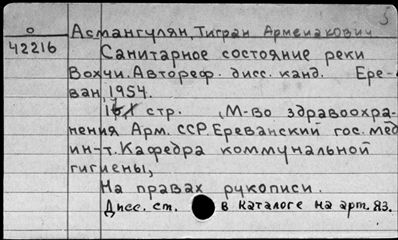 5
о
42216
Асмангулян, Тигран Арменакович
Санитарное состояние реки
Вохчи. Автореф. дисс. канд. Ере-
ван, 1954.
стр. , М-во здравоохра-
нения Арм. ССР. Ереванский гос. мед
ин-т. Кафедра коммунальной
гигиены,
На правах рукописи.
Дисс. ст. в каталоге на арт. яз.